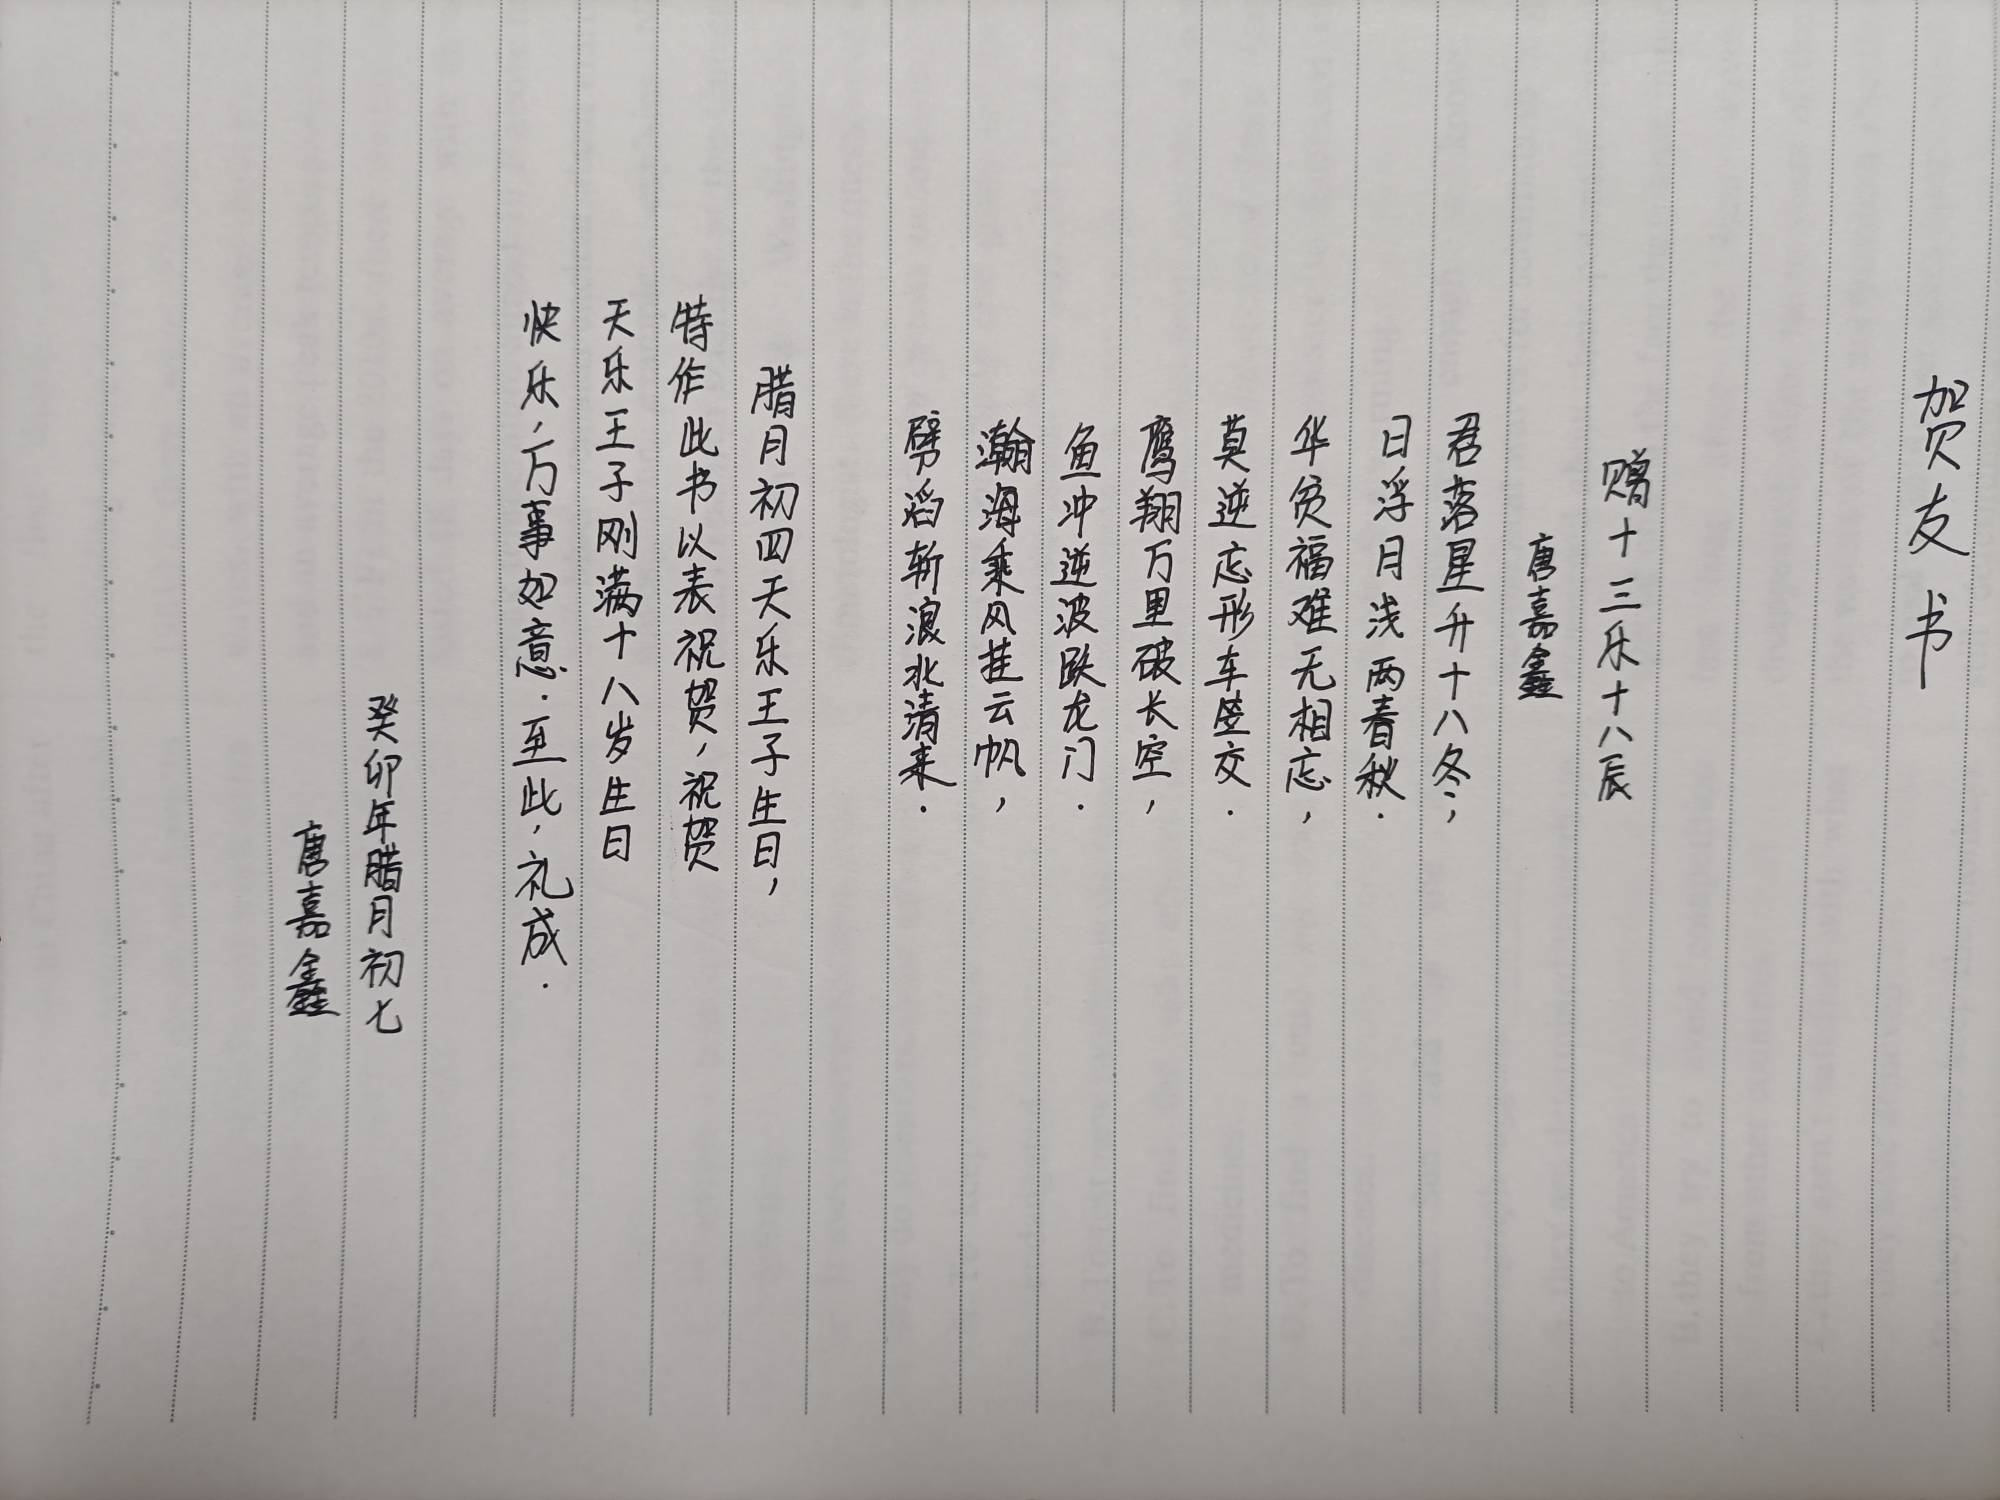 贺友书
赠十三乐十八辰
唐嘉鑫
君落星升十八冬，
日浮月浅两春秋.
华贫福难无相忘，
莫逆忘形车笠交.
鹰翔万里破长空，
鱼冲逆波跃龙门.
瀚海乘风挂云帆，
劈滔斩浪北清来.
腊月初四天乐王子生日，
特作此书以表祝贺，祝贺
天乐王子刚满十八岁生日
快乐，万事如意.至此，礼成.
癸卯年腊月初七
唐嘉鑫